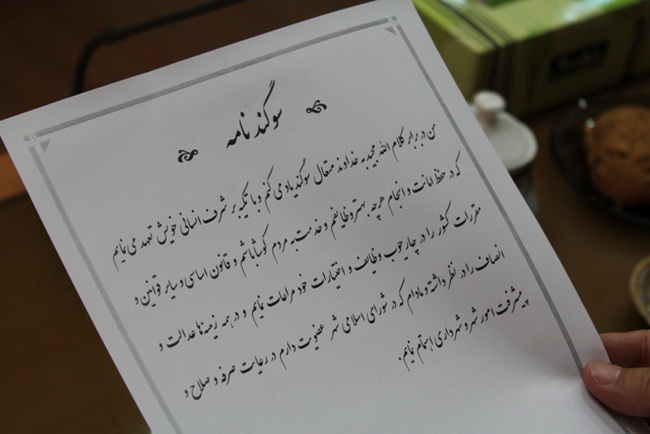 سوگندنامه
من در برابر کلام الله مجید به خداوند متعال سوگند یاد می کنم و با تکیه بر شرف انسانی خویش تعهد می نمایم
که در حفظ امانت و انجام هر چه بهتر وظایفم و خدمت به مردم کوشا باشم و قانون اساسی و سایر قوانین و
مقررات کشور را در چارچوب وظایف و اختیارات خود مراعات نمایم و در همه زمینه ها عدالت و
انصاف را در نظر داشته و مادام که در شورای اسلامی شهر عضویت دارم در رعایت صرفه و صلاح و
پیشرفت امور شهر و شهرداری اهتمام نمایم.